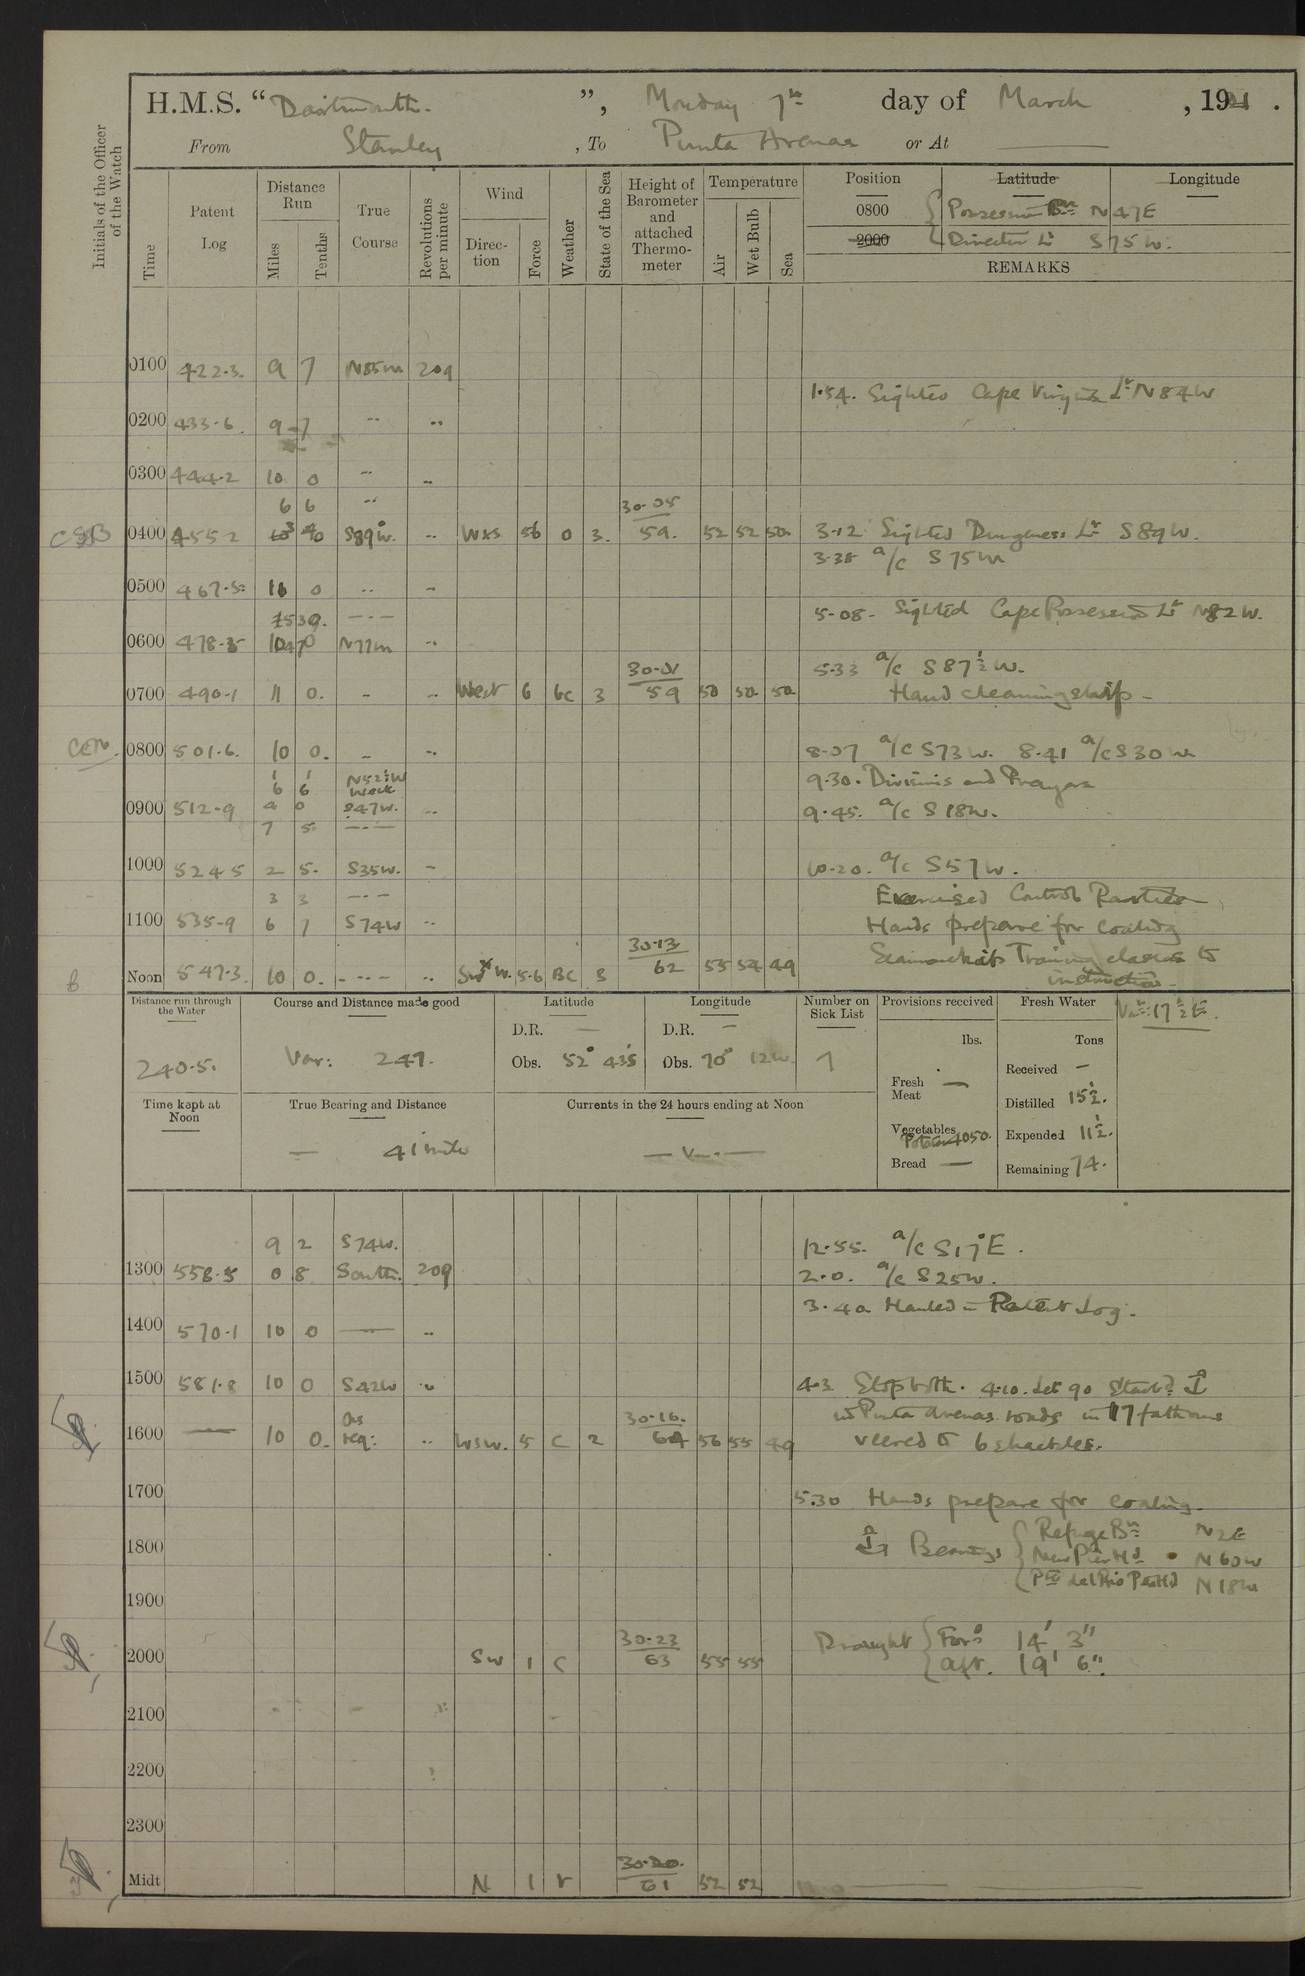 H.M.S. “ Dartmouth. ”, Monday 7th day of March , 1921 .
From Stanley , To Punta Arenas or At
Initials of the Officer of the Watch
Time
Patent Log
Distance Run
Miles
Tenths
True Course
Revolutions per minute
Wind
Direction
Force
Weather
State of the Sea
Height of Barometer and attached Thermometer
Temperature
Air
Wet Bulb
Sea
Position Latitude Longitude
0800 Possession Bn N47E
2000 Director Lt S75W.
REMARKS
0100 422.3. 9 7 N85W 209
1.54. Sighted Cape Virgins Lt N84W
0200 433.6 9 7 " "
0300 444.2 10 0 " "
6 6 " 30.05
CSB 0400 455.2 3 4 S89°W. " WxS 56 0 3. 59. 52 52 50 3.12 Sighted Dungeness Lt S89W.
3.38 a/c S75W
0500 467.5 10 0 " "
5.08. Sighted Cape Possession Lt N82W.
0600 478.5 N77W "
5.33 a/c S87½W.
0700 490.1 11 0. " " West 6 bc 3 59 50 50 50 Hand cleaning ship
0800 501.6. 10 0. " " 8.07 a/c S73W. 8.41 a/c S30W
1 1 N52½W 9.30. Divisions and Prayers
6 6 West
0900 512.9 4 0 S47W. " 9.45. a/c S18W.
7 5
1000 524.5 2 5. S35W. " 10.20. a/c S57W.
3 3 Exercised Control Parties
1100 535.9 6 7 S74W " Hands prepare for coaling
30.13
Noon 547.3. 10 0. " " SWxW. 5.6 BC 3 62 55 54 49 Training classes to
instruction
Distance run through the Water
240.5.
Course and Distance made good
Var: 247.
Latitude
D.R. —
Obs. 52° 43.5
Longitude
D.R. —
Obs. 70° 12W.
Number on Sick List
7
Provisions received
lbs.
Fresh Meat —
Vegetables Potatoes 4050.
Bread —
Fresh Water
Tons
Received —
Distilled 15½.
Expended 11½.
Remaining 74.
Var: 17½E.
Time kept at Noon
True Bearing and Distance
— 41 miles
Currents in the 24 hours ending at Noon
— V — . —
9 2 S74W. 12.55. a/c S17°E.
1300 558.5 0 8 South. 209 2.0. a/c S25W.
3.40 Hauled in Patent Log.
1400 570.1 10 0 — "
1500 581.8 10 0 S42W " 4.3 Stop both. 4.10. Let go Starbd ⚓
as 30.16. in Punta Arenas roads in 17 fathoms
1600 — 10 0. req: " WSW. 5 C 2 64 56 55 49 veered to 6 shackles.
1700 5.30 Hands prepare for coaling.
Refuge Bn N2E
1800 ⚓ Bearings New Pier Hd N60W
N18W
1900
30.23 Draught { Ford 14' 3"
2000 SW 1 C 63 55 55 { Aft. 19' 6".
2100
2200
2300
30.20.
Midt N 1 r 61 52 52